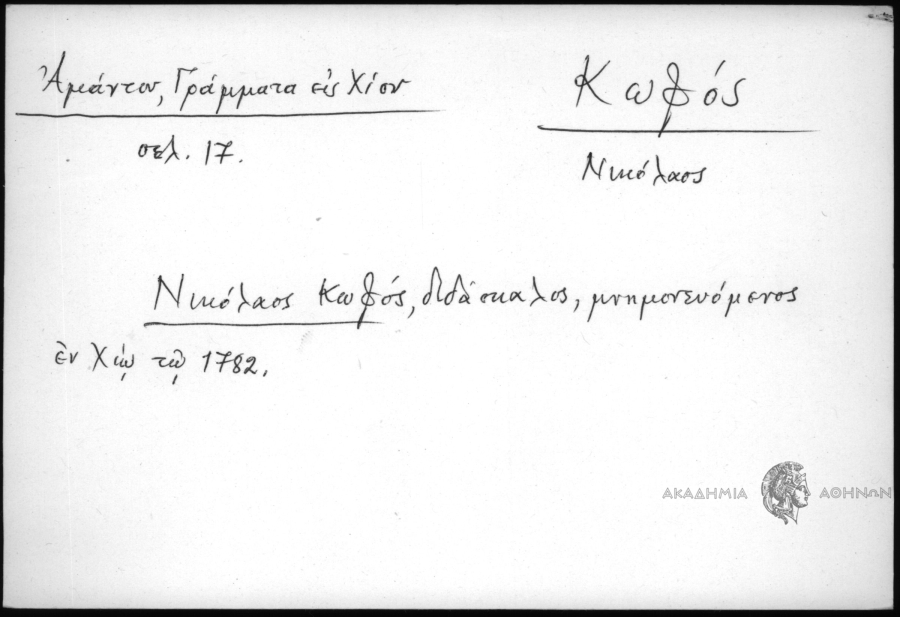 Ἀμάντου, Γράμματα εἰς Χίον
σελ. 17.
Κωφός
Νικόλαος
Νικόλαος Κωφός, διδάσκαλος, μνημονευόμενος
ἐν Χίῳ τῷ 1782.
ΑΚΑΔΗΜΙΑ ΑΘΗΝΩΝ